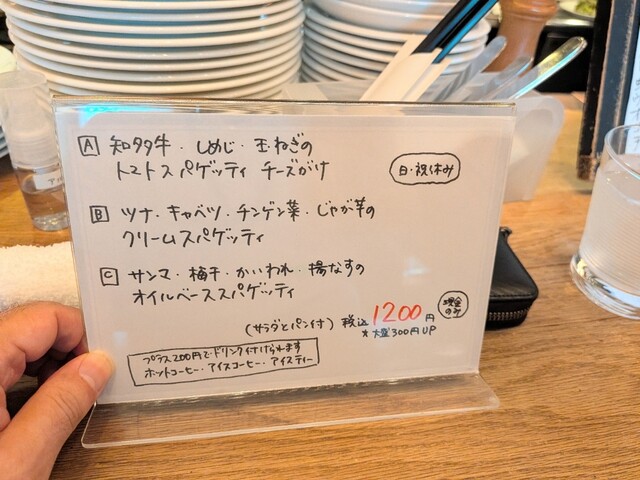 A 知多牛・しめじ・玉ねぎの
トマトスパゲッティ チーズがけ
日・祝休み
B ツナ・キャベツ・チンゲン菜・じゃが芋の
クリームスパゲッティ
C サンマ・梅干・かいわれ・揚なすの
オイルベーススパゲッティ
(サラダとパン付) 税込 1200円
現金のみ
*大盛300円UP
プラス200円でドリンク付けられます
ホットコーヒー・アイスコーヒー・アイスティー